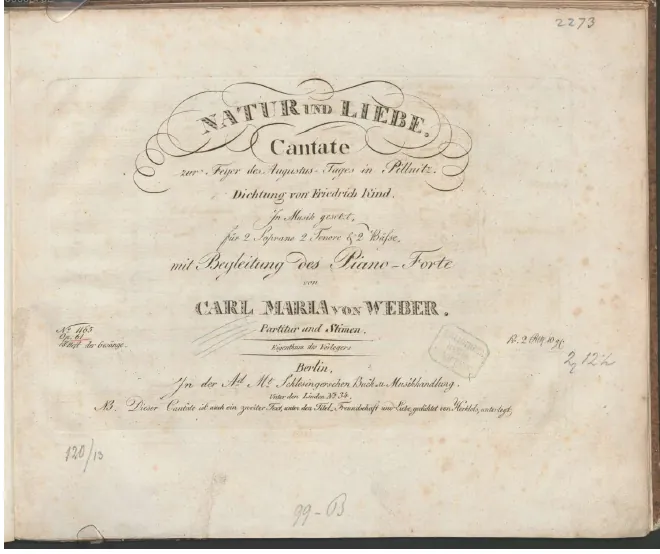 2273
NATUR UND LIEBE.
Cantate
zur Feyer des Augustus-Tages in Pillnitz.
Dichtung von Friedrich Kind.
In Musik gesetzt,
für 2 Soprane 2 Tenore & 2 Bässe,
mit Begleitung des Piano-Forte
von
CARL MARIA VON WEBER.
Partitur und Stimen.
Eigenthum des Verlegers
No. 1163
Op. 61
Heft der Gesänge.
2, 12½
Berlin,
In der Ad. Mt. Schlesingerschen Buch u. Musikhandlung.
Unter den Linden No. 34.
NB. Dieser Cantate ist auch ein zweiter Text, unter dem Titel, Freundschaft und Liebe, gedichtet von Herklots, unterlegt.
120/13
99-B